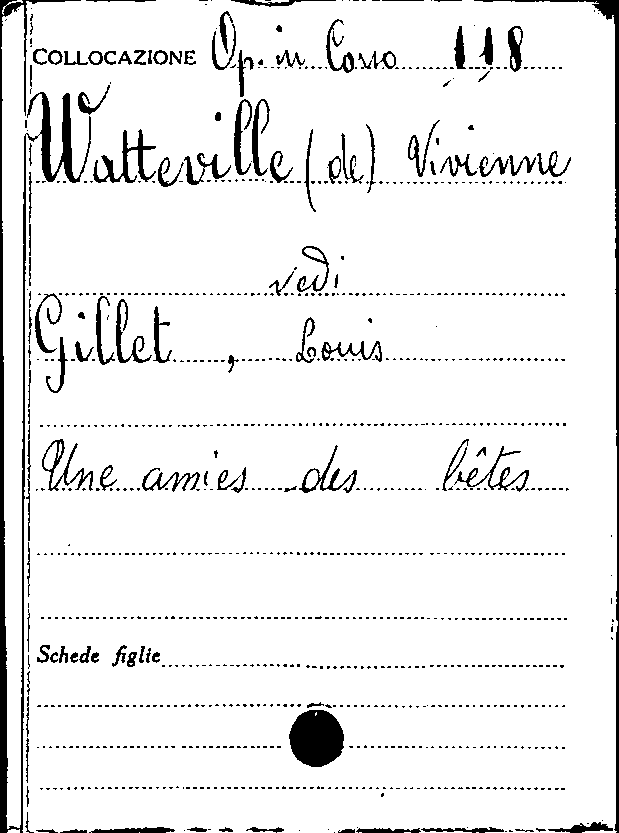 COLLOCAZIONE Op. in Corso 118
Watteville (de) Vivienne
vedi
Gillet, Louis
Une amies des bêtes
Schede figlie